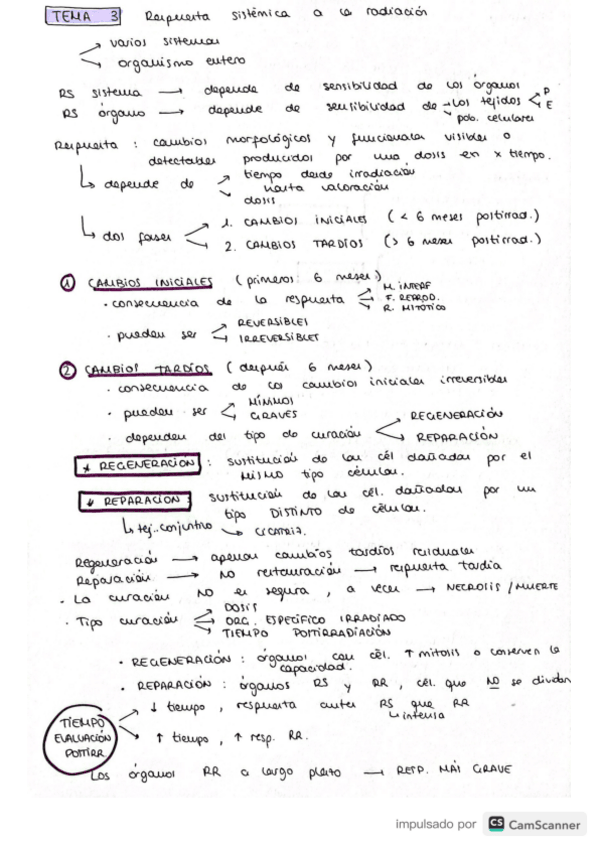 TEMA 3 Respuesta sistémica a la radiación
varios sistemas
organismo entero
RS sistema → depende de sensibilidad de los órganos
RS órgano → depende de sensibilidad de los tejidos < P E
pob. celulares
Respuesta : cambios morfológicos y funcionales visibles o
detectables producidos por una dosis en x tiempo.
↳ depende de tiempo desde irradiación
hasta valoración
dosis
↳ dos fases 1. CAMBIOS INICIALES (< 6 meses postirrad.)
2. CAMBIOS TARDÍOS (> 6 meses postirrad.)
① CAMBIOS INICIALES (primeros 6 meses)
· consecuencia de la respuesta M. INTERF
F. REPROD.
R. MITÓTICO
· pueden ser REVERSIBLES
IRREVERSIBLES
② CAMBIOS TARDÍOS (después 6 meses)
· consecuencia de los cambios iniciales irreversibles
· pueden ser MÍNIMOS
GRAVES
· dependen del tipo de curación REGENERACIÓN
REPARACIÓN
* REGENERACIÓN : sustitución de las cél dañadas por el
MISMO tipo células.
* REPARACIÓN : sustitución de las cél. dañadas por un
tipo DISTINTO de células.
↳ tej. conjuntivo → CICATRIZ.
Regeneración → apenas cambios tardíos residuales
Reparación → NO restauración → respuesta tardía
· La curación NO es segura, a veces → NECROSIS / MUERTE
· Tipo curación DOSIS
ORG. ESPECÍFICO IRRADIADO
TIEMPO POSTIRRADIACIÓN
· REGENERACIÓN : órganos con cél. ↑ mitosis o conserven la
capacidad.
· REPARACIÓN : órganos RS y RR, cél. que NO se dividan
TIEMPO EVALUACIÓN POSTIRR
↓ tiempo, respuesta antes RS que RR
↳ intensa
↑ tiempo, ↑ resp. RR.
Los órganos RR a largo plazo → RESP. MÁS GRAVE
impulsado por CS CamScanner